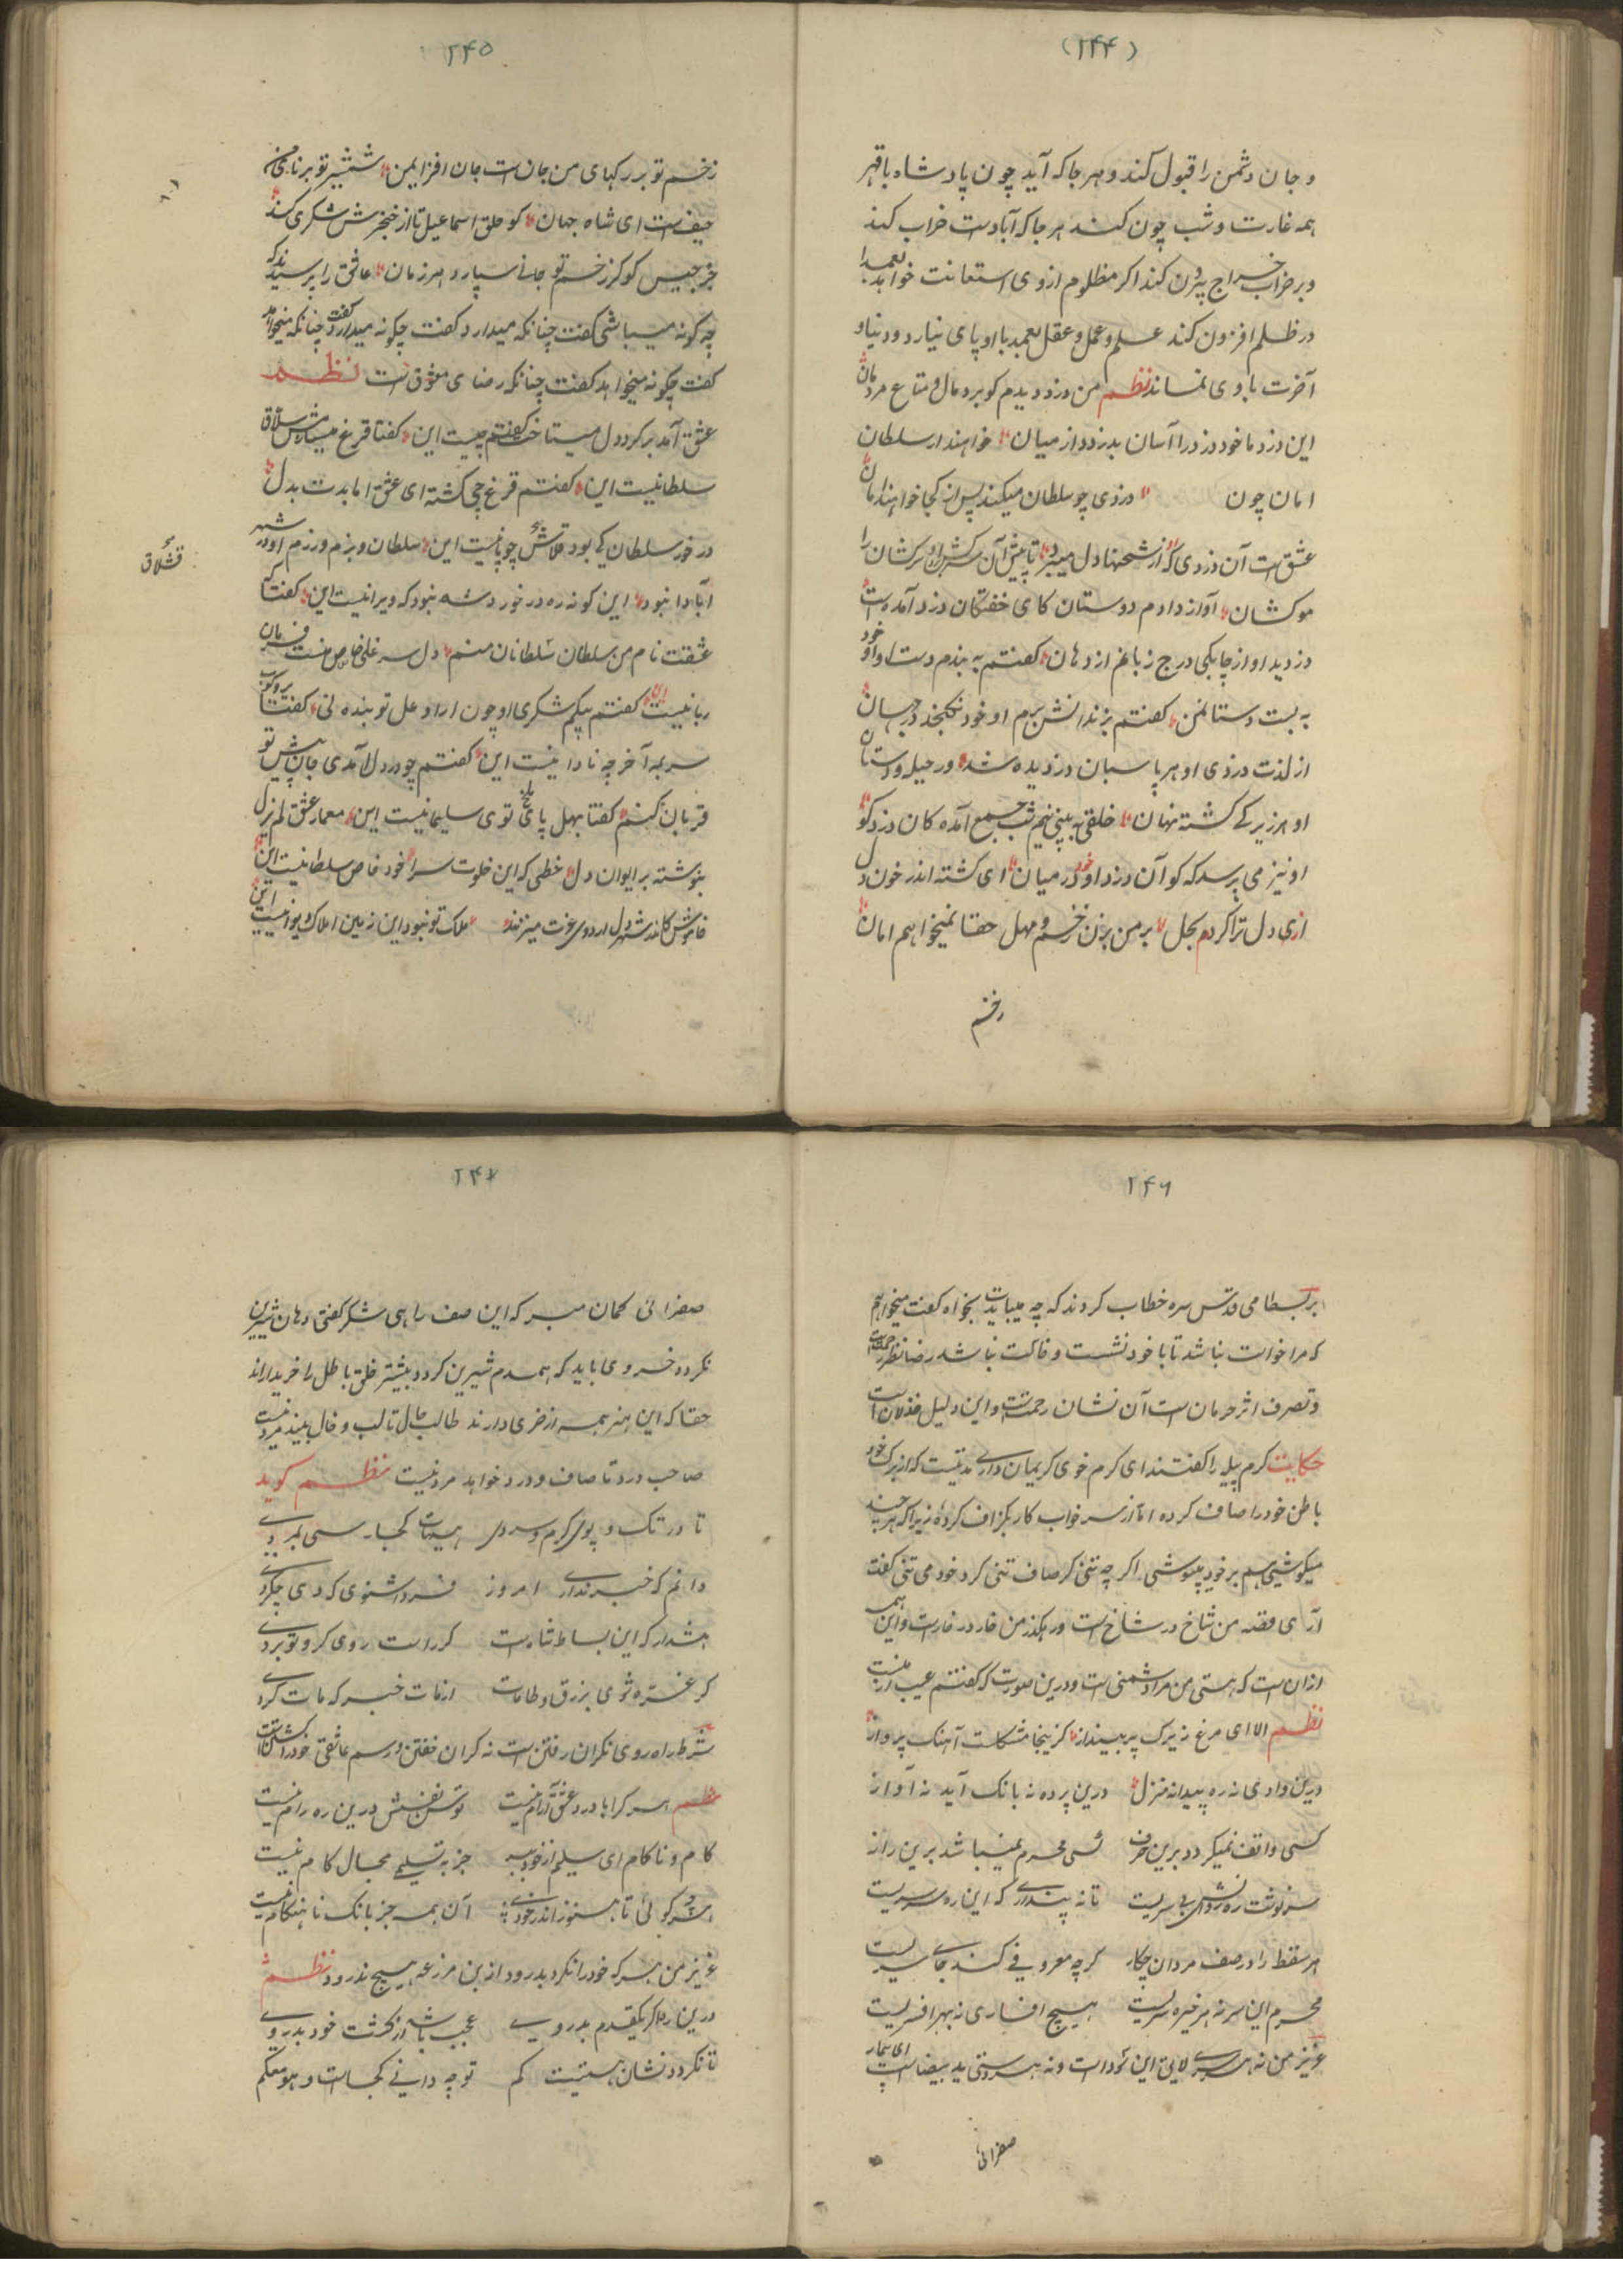 (۲۴۴)
و جان دشمن را قبول کند و هر جا که آید چون پادشاه باقهر
همه غارت و شب چون کند هر جا که آباد است خراب کند
و بر خراب خراج بیرون کند اگر مظلوم از وی استعانت خواهد بعمدا
در ظلم افزون کند علم و عمل و عقل بعمد با او پای نیارد و دنیا و
آخرت با وی نماند نظم من دزد دیدم کو برد مال و متاع مردمان
این دزد ما خود دزد را آسان بدزدد از میان خواهند از سلطان
امان چون دزدی چو سلطان میکند پس از کجا خواهند امان
عشق است آن دزدی که از شحنها دل میبرد تا پیش آن سرکش برد سرکشان را
موکشان آواز دادم دوستان کای خفتگان دزد آمده است
دزدید او از چابکی درج زبانم از دهان گفتم به بندم دست او او خود
به بست دستان من گفتم بزندانش برم او خود نگنجد در جهان
از لذت دزدی او هر پاسبان دزدیده شد ور حیله و دستان
او هر زیرکی گشته نهان خلقی به بینی نیم شب جمع آمده کان دزد کو
او نیز می پرسد که کو آن دزد او خود در میان ای گشته اندر خون دل
ازی دل ترا کردم بحل بر من بزن زخم و مهل حقا نمیخواهم امان
زخم
۲۴۵
زخم تو بر رگهای من جان است جان افزای من شمشیر تو بر نای من
حیف است ای شاه جهان کو حلق اسماعیل تا از خنجرش شکری کند
جرجیس کو کز زخم تو جانی سپارد هر زمان عاشق را پرسیدند که
چه گونه میباشی گفت چنانکه میدارد گفت چگونه میدارد گفت چنانکه میخواهد
گفت چگونه میخواهد گفت چنانکه رضای معشوق است نظم
عشق آمد بر گرد دل میتاخت گفتم چیست این گفتا قرغ میسازمش قشلاق
سلطانیست این گفتم قرغ چی گشته ای عشق اما بدت بدل
در خور سلطان کی بود قلاش چوپانیست این سلطان و بزم و رزم او در شهر
آبادا نبود این کونه ره در خورد شه نبود که ویرانیست این گفتا که
عشقت نام من سلطان سلطانان منم دل سر غلی خاص منست فرمان
ربانیست این گفتم بیکم شکری او چون ارا و عل تو بنده نی گفتا برو کوب
سر بمه آخر چه نادانیست این گفتم چو در دل آمدی جان پیش تو
قربان کنم گفتا بهل پای ملخ توی سلیمانیست این معمار عشق لم یزل
بنوشته بر ایوان دل خطی که این خلوت سرا خود خاص سلطانیست این
خاموش کاندر شهر دل اردوی عزت میزنند ملک تو نبود این زمین املاک دیوانیست این
قشلاق
۲۴۶
بر بسطامی قدس سره خطاب کردند که چه میبایدت بخواه گفت میخواهم
که مرا خواست نباشد تا با خود نشست و خاکت نباشد رضا نظر رحمت است
و تصرف اثر حرمان است آن نشان رحمتست و این دلیل خذلان است
حکایت کرم پیله را گفتند ای کرم خوی کریمان داری مدتیست که از برک خود
باطن خود را صاف کرده اما از سر خواب کار بگزاف کرده زیرا که هر چند
میکوشی هم بر خود میپوشی اگر چه تنی گر صاف تنی گرد خود می تنی گفت
آری قصه من شاخ در شاخ است و رهگذر من خار در خار است و این همه
ازان است که هستی من مرا دشمنی است و درین صورت که گفتم عیب از منست
نظم الا ای مرغ زیرک پر بینداز کزینجا مشکلست آهنک پرواز
درین وادی نه ره پیدا نه منزل درین پرده نه بانک آید نه آواز
کسی واقف نمیگردد برین حرف کسی محرم نمیباشد برین راز
سرنوشت ره روانش بی سریست تا نه پنداری که این ره سرسریست
هر سقط را در صف مردان چکار گر چه معروفی کند جای سریست
محرم این سر نه هر خیره سریست هیچ افساری نه بهر افسریست
عزیز من نه هر سری لایق این سودا است و نه هر دستی ید بیضا است ای بیمار
صفرائی
۲۴۷
صفرائی گمان مبر که این صف راهی شکر گفتی دهان شیرین
نگردد خسروی باید که همدم شیرین گردد بیشتر خلق باطل را خریدارند
حقا که این هنر همه از خری دارند طالب جمال تا لب و خال بیند مرد نیست
صاحب درد تا صاف و درد خواهد مرد نیست نظم گوید
تا در تک و پوی گرم و سردی هیهات کجا رسی بمردی
دانم که خبر نداری امروز فردا شنوی که دی چکردی
هشدار که این بساط شاه است کژ راست روی گرو تو بردی
گر غره شوی بزرق و طامات از مات خبر که مات گردی
شرط راه روی نگران رفتن است نه گران خفتن و رسم عاشقی خود را کشتن است
نظم هر کرا با درد عشق آرام نیست توسن نفسش درین ره رام نیست
کام و ناکام ای سلیم از خود ببر جز به تسلیم مجال کام نیست
هر چه گوئی تا هنوز اندر خودی آن همه جز بانک نا هنگام نیست
عزیز من هر که خود را نکرد بدرود ازین مزرعه هیچ ندرود نظم
درین ره گر یکقدم بدروی عجب باشد از کشت خود بدروی
تا نگردد نشان هستیت گم تو چه دانی کجاست و هو معکم